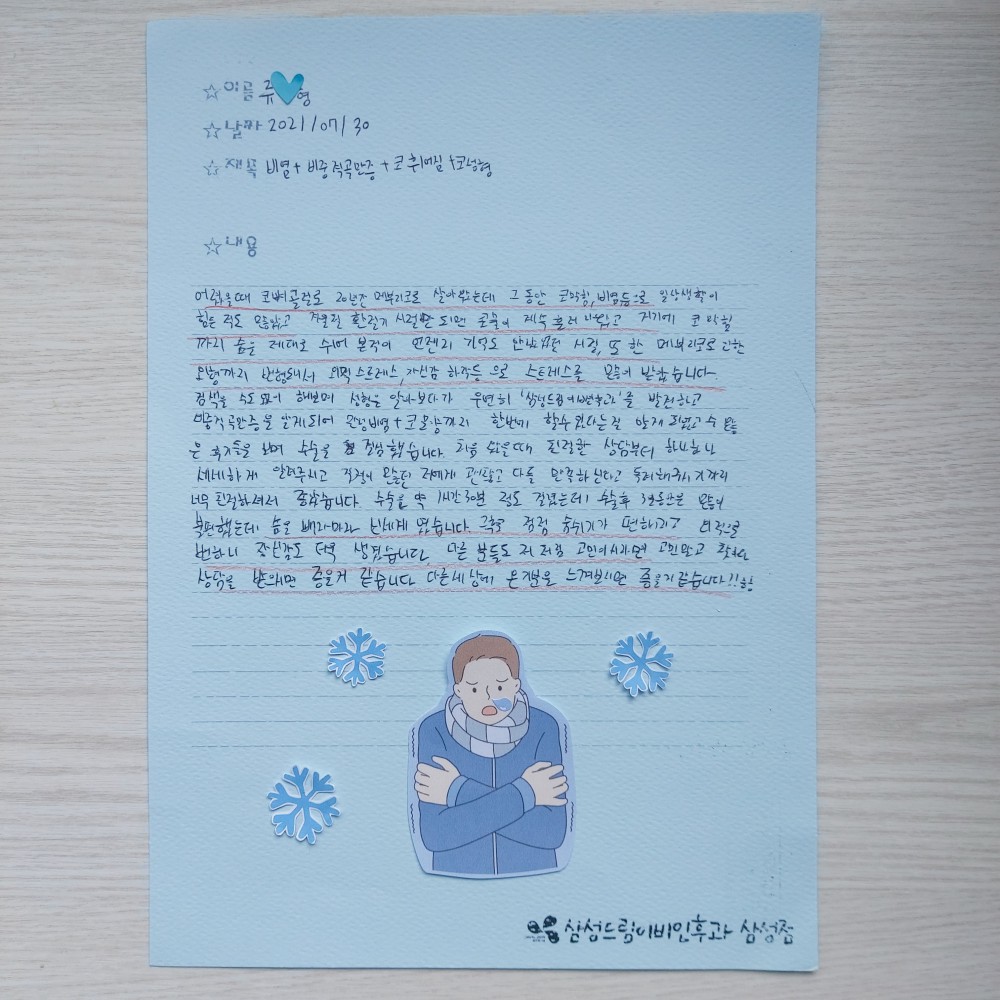 ☆이름 류 형
☆날짜 2021/07/30
☆제목 비염+비중격곡만증+코휘어짐+코성형
☆내용
어렸을때 코뼈골절로 20년간 메부리코로 살아왔는데 그동안 코막힘, 비염등으로 일상생활이
힘든적도 많았고 겨울철 환절기 시럽만 되면 콧물이 계속 흘러 나왔고 거기에 코막힘
까지 숨을 제대로 쉬어 본적이 언젠지 기억도 안났던 시절, 또한 메부리코로 인한
외형까지 변형되서 외적스트레스, 자신감 하락등 으로 스트레스를 많이 받았습니다.
검색을 수도없이 해보며 성형을 알아보다가 우연히 '삼성드림이비인후과'를 발견하고
비중격곡만증을 알게되어 비염+코모양까지 한번에 할수있다는걸 알게 되었고 수 많
은 후기들을 보며 수술을 결정했습니다. 처음 왔을때 친절한 상담부터 하나하나
세세하게 알려주시고 걱정이 많은 저에게 괜찮고 다들 만족하신다고 독려해주시기까지
너무 친절하셔서 좋았습니다. 수술은 약 1시간30분 정도 걸렸는데 수술후 3일동안은 많이
불편했는데 숨을 신세계 였습니다. 그후 점점 숨쉬기가 편하지고 외적으로
변하니 자신감도 더욱 생겼습니다. 다른 분들도 저처럼 고민이시라면 고민말고
상담을 받으시면 좋을거 같습니다 다른세상에 온기분을 느껴보시면 좋을거같습니다!!
삼성드림이비인후과 삼성점